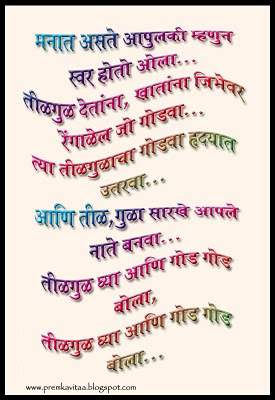 मनात असते आपुलकी म्हणुन
स्वर होतो ओला...
तीळगुळ देतांना, खातांना जिभेवर
रेंगाळेल जो गोडवा...
त्या तीळगुळाचा गोडवा हृदयात
उतरवा...
आणि तीळ,गुळा सारखे आपले
नाते बनवा...
तीळगुळ ध्या आणि गोड गोड
बोला,
तीळगुळ ध्या आणि गोड गोड
बोला...
www.premkavitaa.blogspot.com